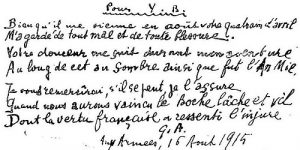 Pour Y. B.
Bien qu'il me vienne en août votre quatrain d'avril
M'a gardé de tout mal et de toute blessure !
Votre douceur me suit durant mon aventure
Au long de cet an sombre ainsi que fut l'An Mil.
Je vous remercierai, s'il se peut, je l'assure
Quand nous aurons vaincu le Boche lâche et vil
Dont la vertu française a ressenti l'injure
G. A.
Aux Armées, 15 Août 1915